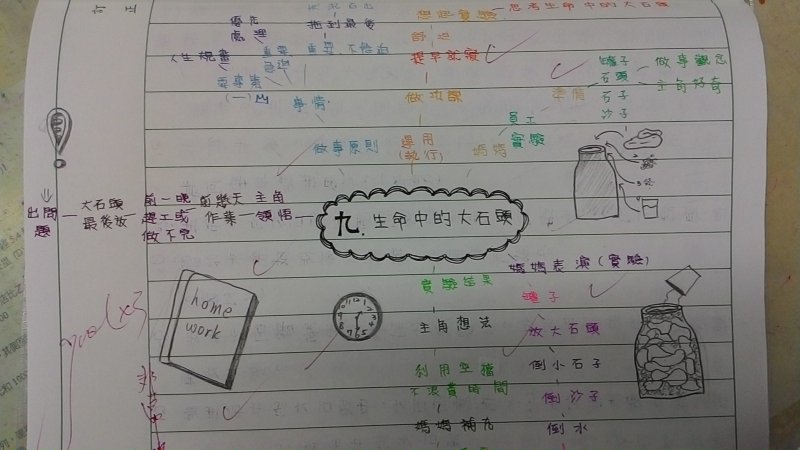 訂 正
優先
處理
拖到最後
思考生命中的大石頭
人生規畫
重要
緊迫
重要、不緊迫
提早就寢
罐子
石頭
石子
沙子
做事觀念
主角好奇
(一)
事情
做功課
準備
員工
實驗
做事原則
運用
(執行)
媽媽
出問
題
大石頭
最後放
前一晚
趕工或
做不完
前幾天
作業
主角
領悟
九.生命中的大石頭
home
work
實驗結果
主角想法
利用空檔
不浪費時間
媽媽補充
媽媽表演(實驗)
罐子
放大石頭
倒小石子
倒沙子
倒水